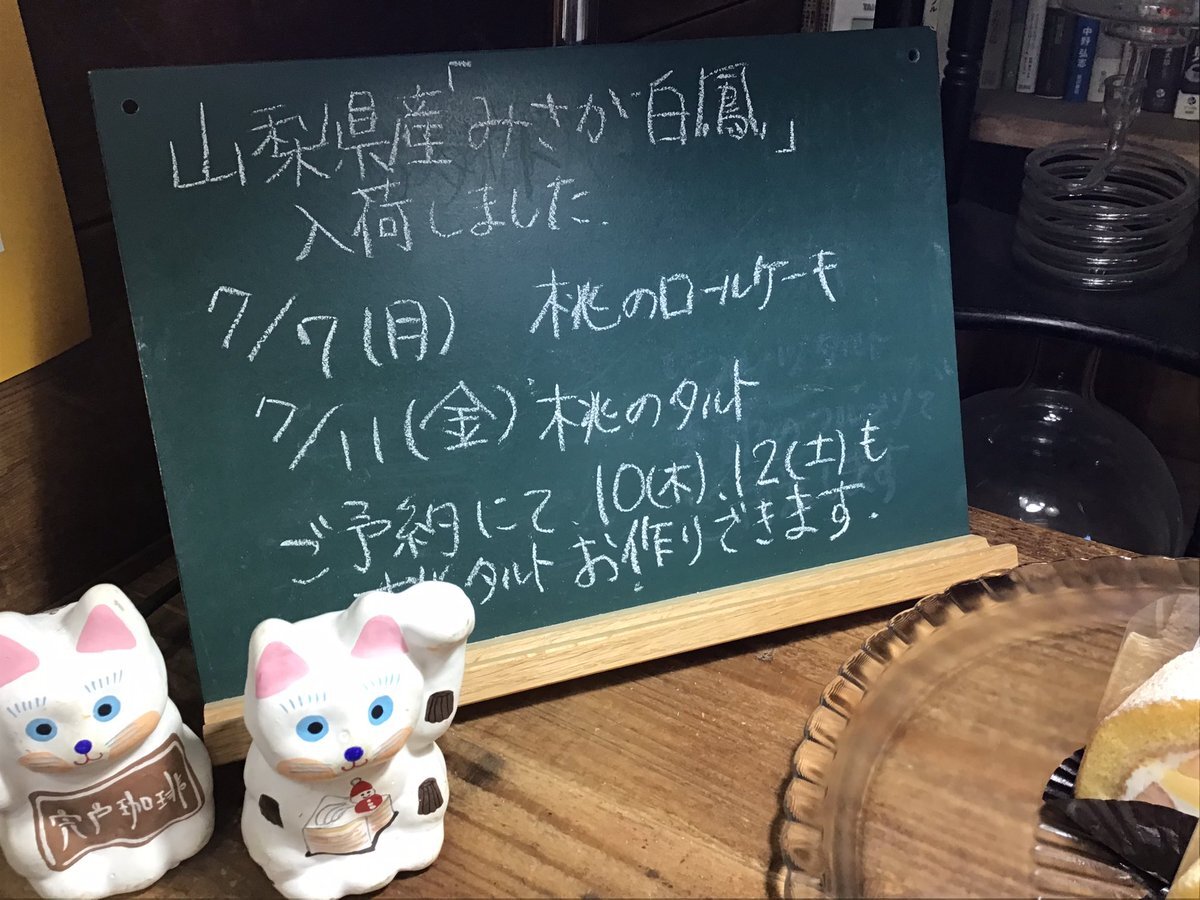 山梨県産「みさか白鳳」
入荷しました.
7/7(月) 桃のロールケーキ
7/11(金) 桃のタルト
ご予約にて、10(木)、12(土)も
桃タルトお作りできます.
宍戸珈琲
中野弘志